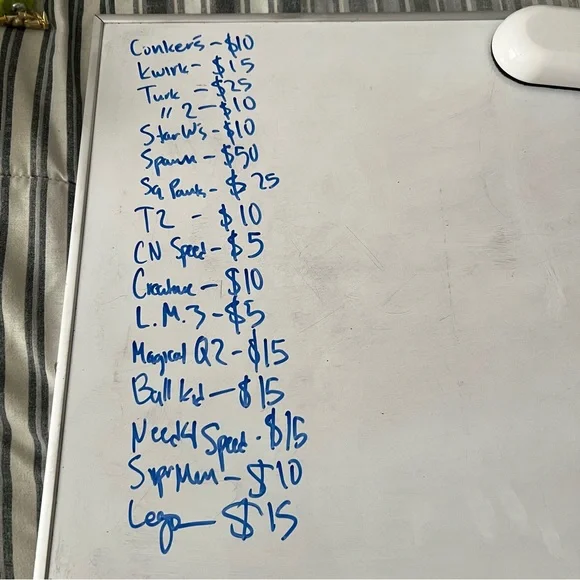 Conkers - $10
Kwirk - $15
Turk - $25
" 2 - $10
Star W's - $10
Spawn - $50
Sq Pants - $25
T2 - $10
CN Speed - $5
Creature - $10
L.M.3 - $5
Magical Q2 - $15
Ball Kid - $15
Need 4 Speed - $15
SuprMan - $10
Lego - $15